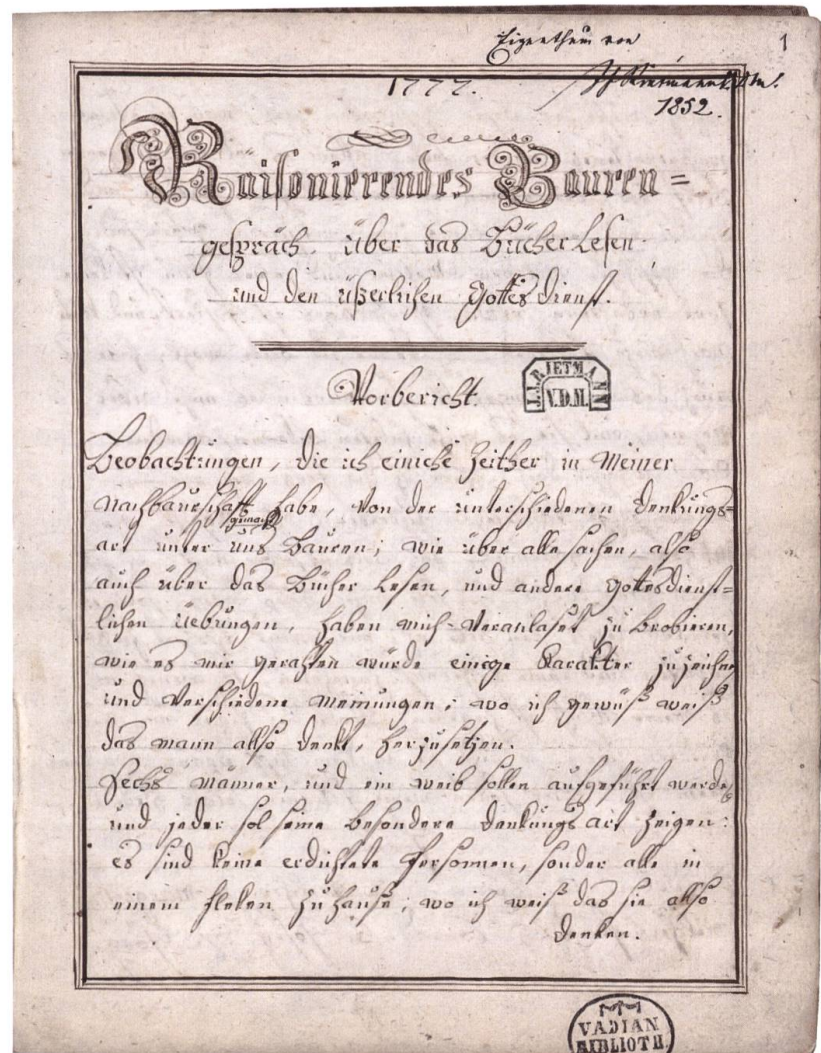 Eigenthum von
1
J J Rietmann V.D.M.
1777.
1852.
Raisonierendes Bauren=
gespräch, über das Bücherlesen
und den üßerlichen Gottesdienst.
Vorbericht.
J. J. RIETMANN
V.D.M.
Beobachtungen, die ich einiche Zeither in Meiner
Nachbaurschafft habe, von der unterschiedenen denkungs=
gemacht
art unter uns Bauren; wie über alle sachen, also
auch über das Bücher Lesen, und andere gottesdienst=
lichen uebungen, haben mich Veranlaset zu brobieren,
wie es mir gerahten wurde einige Karakter zu zeichnen
und Verschiedene Meinungen; wo ich gewüß weiß
das mann allso denkt, herzusetzen.
Sechs Männer, und ein weib sollen aufgeführt werden
und jeder sol seine besondere denkungs art zeigen:
es sind keine erdichtete Persohnen, sonder alle in
einem fleken zu hause; wo ich weiß das sie allso
denken.
VADIAN
BIBLIOTH.